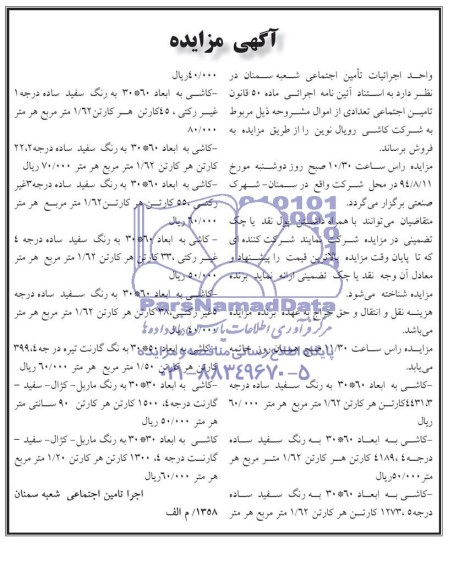 آگهی مزایده
واحد اجرائیات تأمین اجتماعی شعبه سمنان در
نظر دارد به استناد آئین نامه اجرائی ماده ۵۰ قانون
تامین اجتماعی تعدادی از اموال مشروحه ذیل مربوط
به شرکت کاشی رویال نوین را از طریق مزایده به
فروش برساند.
مزایده راس ساعت ۱۰/۳۰ صبح روز دوشنبه مورخ
۹۴/۸/۱۱ در محل شرکت واقع در سمنان- شهرک
صنعتی برگزار می‌گردد.
متقاضیان می‌توانند با همراه داشتن پول نقد یا چک
تضمینی در مزایده شرکت نمایند شرکت کننده ای
که تا پایان وقت مزایده بالاترین قیمت را پیشنهاد و
معادل آن وجه نقد یا چک تضمینی ارائه نماید برنده
مزایده شناخته می‌شود.
هزینه نقل و انتقال و حق حراج به عهده برنده مزایده
می‌باشد.
مزایده راس ساعت ۱۱/۳۰ صبح همان روز خاتمه
می‌یابد.
-کاشی به ابعاد ۶۰*۳۰ به رنگ سفید ساده درجه
۴۴۳۱،۳ کارتن هر کارتن ۱/۶۲ متر مربع هر متر ۶۰/۰۰۰
ریال
-کاشی به ابعاد ۶۰*۳۰ به رنگ سفید ساده
درجه ۴، ۴۱۸۹ کارتن هر کارتن ۱/۶۲ متر مربع هر
متر ۵۰/۰۰۰ ریال
-کاشی به ابعاد ۶۰*۳۰ به رنگ سفید ساده
درجه ۵، ۱۲۷۳ کارتن هر کارتن ۱/۶۲ متر مربع هر متر
۴۰/۰۰۰ ریال
-کاشی به ابعاد ۶۰*۳۰ به رنگ سفید ساده درجه ۱
غیر رکتی ، ۴۵ کارتن هر کارتن ۱/۶۲ متر مربع هر متر
۸۰/۰۰۰
-کاشی به ابعاد ۶۰*۳۰ به رنگ سفید ساده درجه ۲، ۲۲
کارتن هر کارتن ۱/۶۲ متر مربع هر متر ۷۰/۰۰۰ ریال
-کاشی به ابعاد ۶۰*۳۰ به رنگ سفید ساده درجه ۳ غیر
رکتی ، ۵۵ کارتن هر کارتن ۱/۶۲ متر مربع هر متر
۶۰/۰۰۰ ریال
-کاشی به ابعاد ۶۰*۳۰ به رنگ سفید ساده درجه ۴
غیر رکتی ، ۳۳ کارتن هر کارتن ۱/۶۲ متر مربع هر متر
۵۰/۰۰۰ ریال
-کاشی به ابعاد ۶۰*۳۰ به رنگ سفید ساده درجه
۵ غیر رکتی، ۳۸ کارتن هر کارتن ۱/۶۲ متر مربع هر متر
۴۰/۰۰۰ ریال
کاشی به ابعاد ۵۰*۳۰ به رنگ گارنت تیره درجه ۴، ۳۹۹
کارتن هر کارتن ۱/۵۰ متر مربع هر متر ۶۰/۰۰۰ ریال
کاشی به ابعاد ۳۰*۳۰ به رنگ ماربل- کژال- سفید -
گارنت درجه ۴، ۱۵۰۰ کارتن هر کارتن ۹۰ سانتی متر
هر متر ۵۰/۰۰۰ ریال
کاشی به ابعاد ۳۰*۳۰ به رنگ ماربل- کژال- سفید -
گارنت درجه ۴، ۱۳۰۰ کارتن هر کارتن ۱/۲۰ متر مربع
هر متر ۶۰/۰۰۰ ریال
اجرا تامین اجتماعی شعبه سمنان
۱۳۵۸/ م الف
ParsNamadData
۰۲۱-۸۸۳۴۹۶۷۰-۵